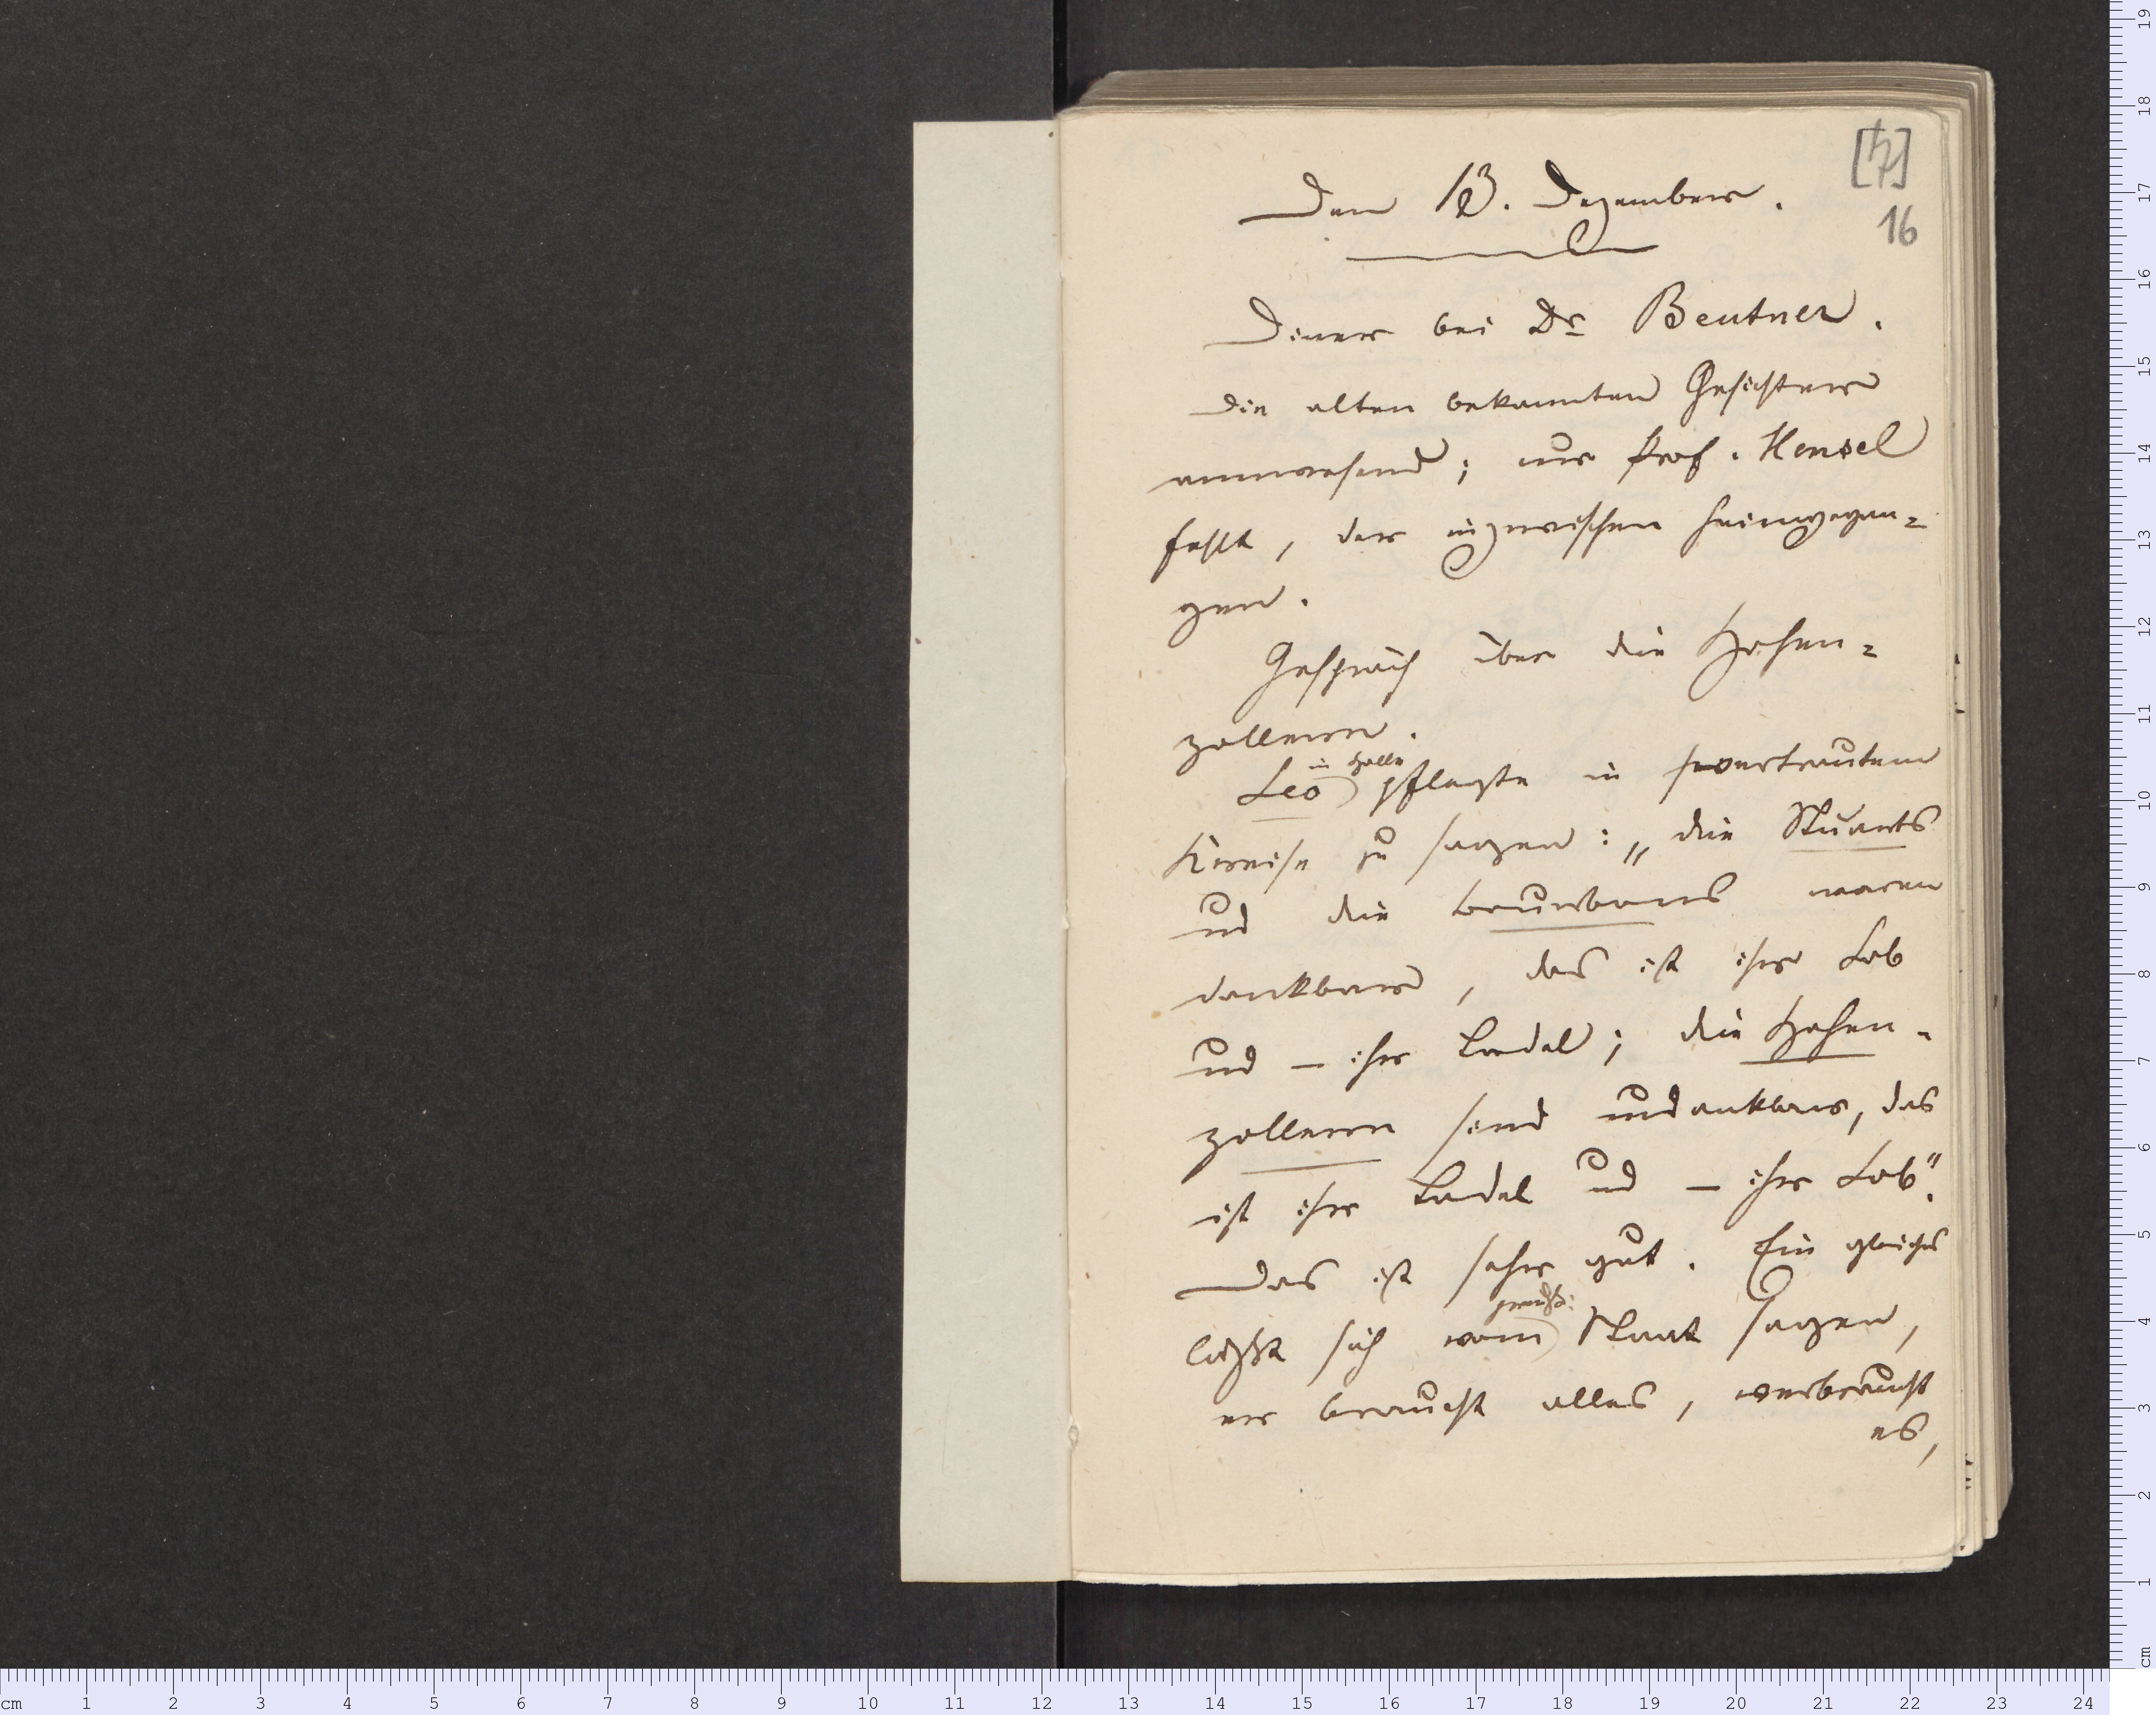 16
Den 13. Dezember.
Diner bei Dr Beutner.
Die alten bekannten Gesichter
anwesend; nur Prof. Hensel
fehlt, der inzwischen heimgegan=
gen.
Gespräch über die Hohen=
zollern.
Leo in Halle pflegte in vertrautem
Kreise zu sagen: „die Stuarts
und die Bourbons waren
dankbar, das ist ihr Lob
und – ihr Tadel; die Hohen-
zollern sind undankbar, das
ist ihr Tadel und – ihr Lob".
Das ist sehr gut. Ein gleiches
läßt sich vom preuß: Staat sagen,
er braucht alles, verbraucht
es,